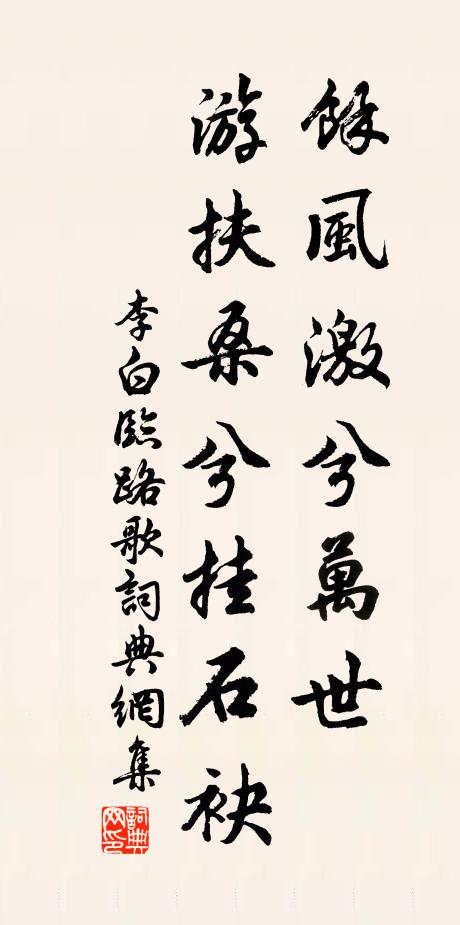 餘風激兮萬世
游扶桑兮挂石袂
李白臨路歌詞典網集
詞典网印